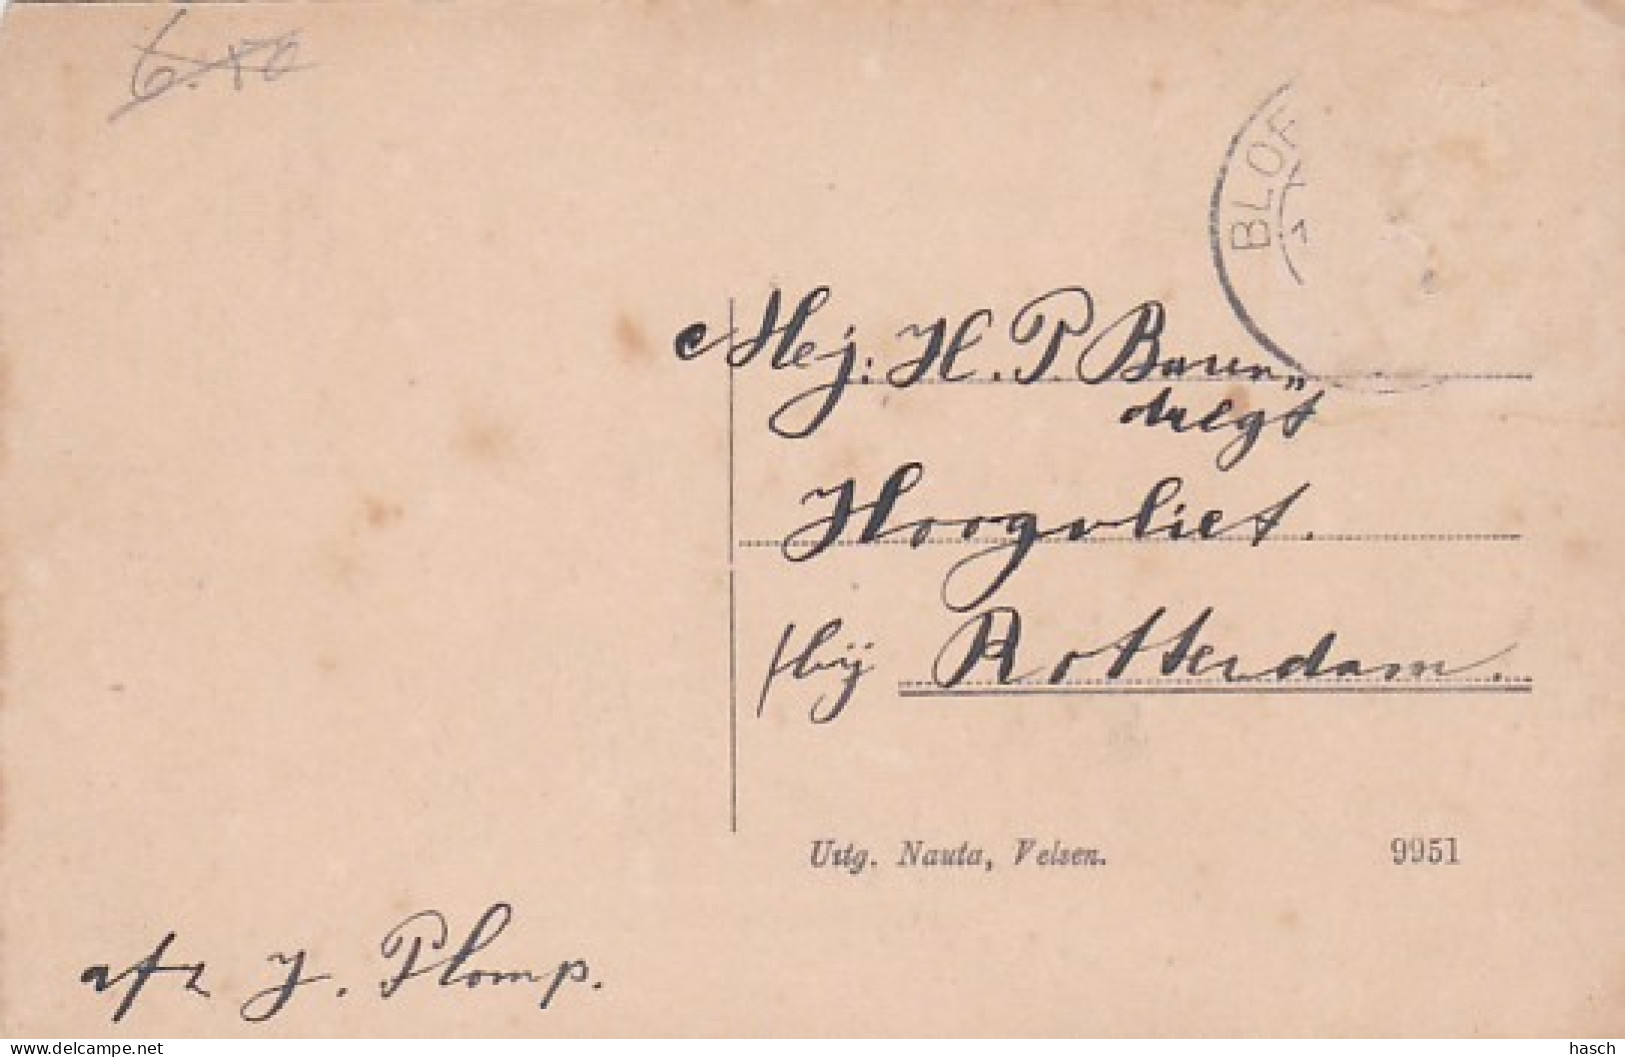 6.50
BLOE
1
Mej: H. P. Baren„
dregt
Hoogvliet.
bij Rotterdam.
Uitg. Nauta, Velsen. 9951
afz J. Plomp.
www.delcampe.net
hasch